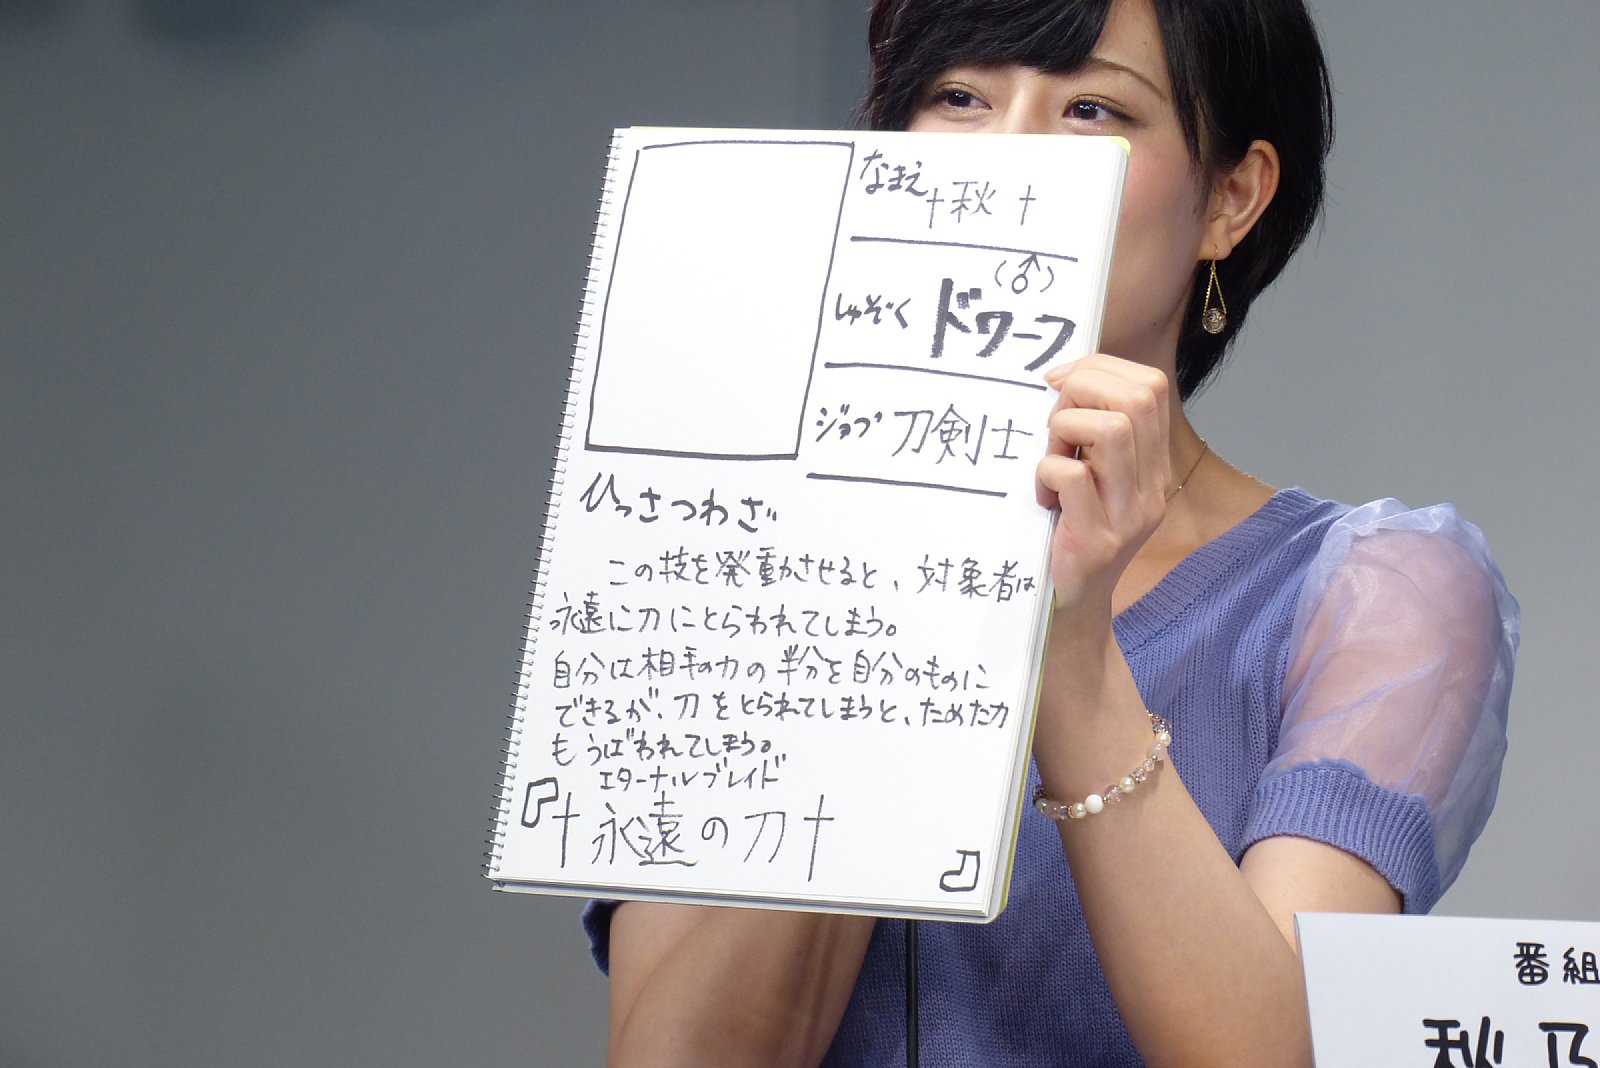 なまえ †秋†
(♂)
しゅぞく ドワーフ
ジョブ 刀剣士
ひっさつわざ
この技を発動させると、対象者は
永遠に刀にとらわれてしまう。
自分は相手の力の半分を自分のものに
できるが、刀をとられてしまうと、ためた力
もうばわれてしまう。
エターナルブレイド
『†永遠の刀†』
番組
秋乃